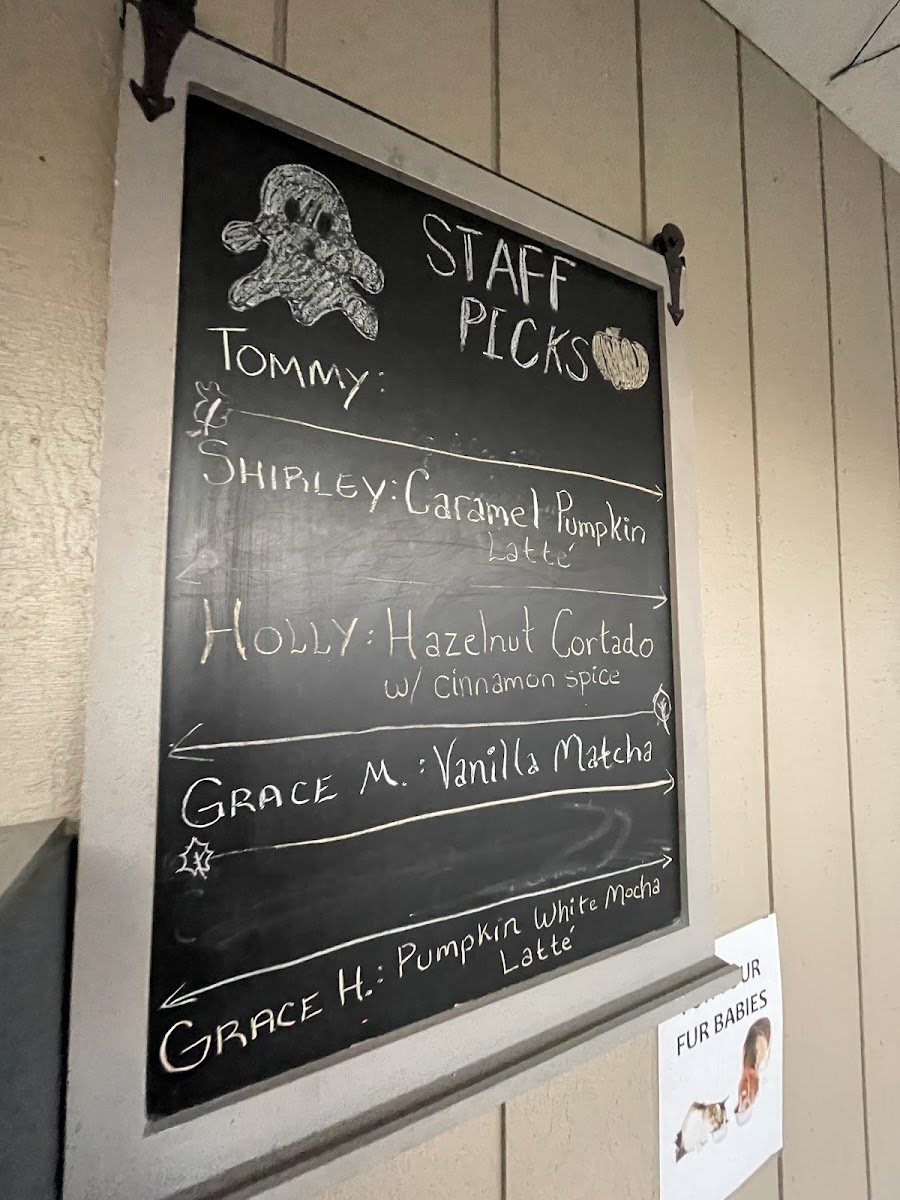 STAFF
PICKS
TOMMY:
SHIRLEY: Caramel Pumpkin
Latté
HOLLY: Hazelnut Cortado
w/ cinnamon spice
GRACE M.: Vanilla Matcha
GRACE H.: Pumpkin White Mocha
Latté
UR
FUR BABIES